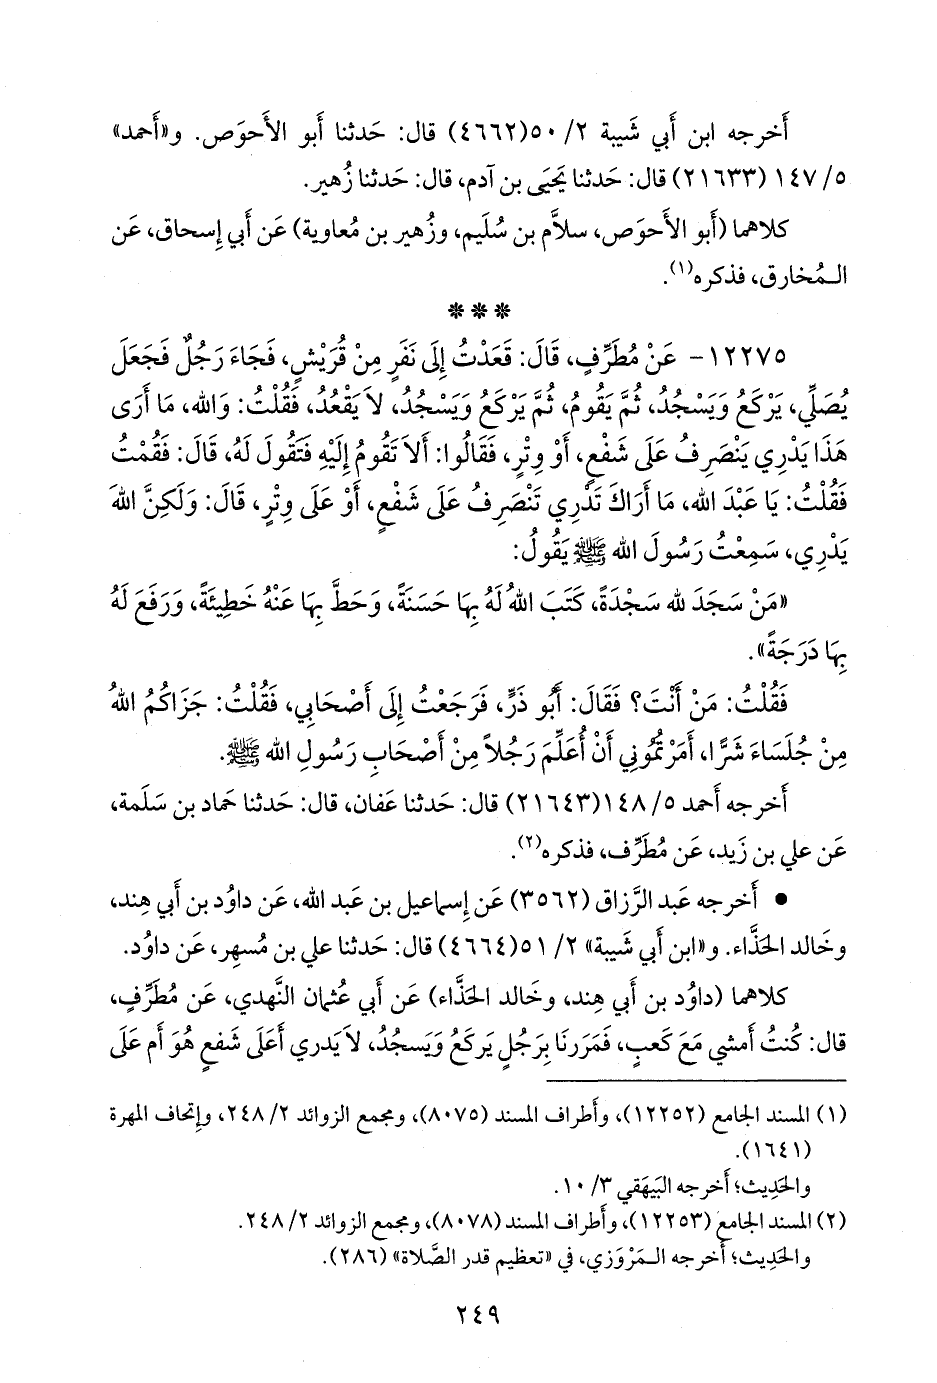 أَخرجه ابن أَبي شَيبة ٢/ ٥٠(٤٦٦٢) قال: حَدثنا أَبو الأَحوَص. و«أَحمد»
٥/ ١٤٧ (٢١٦٣٣) قال: حَدثنا يَحيَى بن آدم، قال: حَدثنا زُهير.
كلاهما (أَبو الأَحوَص، سلاَّم بن سُلَيم، وزُهير بن مُعاوية) عَن أَبي إِسحاق، عَن
الـمُخارق، فذكره(١).
***
١٢٢٧٥- عَنْ مُطَرِّفٍ، قَالَ: قَعَدْتُ إِلَى نَفَرٍ مِنْ قُرَيْشٍ، فَجَاءَ رَجُلٌ فَجَعَلَ
يُصَلِّي، يَرْكَعُ وَيَسْجُدُ، ثُمَّ يَقُومُ، ثُمَّ يَرْكَعُ وَيَسْجُدُ، لاَ يَقْعُدُ، فَقُلْتُ: وَالله، مَا أَرَى
هَذَا يَدْرِي يَنْصَرِفُ عَلَى شَفْعٍ، أَوْ وِتْرٍ، فَقَالُوا: أَلاَ تَقُومُ إِلَيْهِ فَتَقُولَ لَهُ، قَالَ: فَقُمْتُ
فَقُلْتُ: يَا عَبْدَ الله، مَا أَرَاكَ تَدْرِي تَنْصَرِفُ عَلَى شَفْعٍ، أَوْ عَلَى وِتْرٍ، قَالَ: وَلَكِنَّ اللهَ
يَدْرِي، سَمِعْتُ رَسُولَ الله ﷺ يَقُولُ:
«مَنْ سَجَدَ لله سَجْدَةً، كَتَبَ اللهُ لَهُ بِهَا حَسَنَةً، وَحَطَّ بِهَا عَنْهُ خَطِيئَةً، وَرَفَعَ لَهُ
بِهَا دَرَجَةً».
فَقُلْتُ: مَنْ أَنْتَ؟ فَقَالَ: أَبُو ذَرٍّ، فَرَجَعْتُ إِلَى أَصْحَابِي، فَقُلْتُ: جَزَاكُمُ اللهُ
مِنْ جُلَسَاءَ شَرًّا، أَمَرْتُمُونِي أَنْ أُعَلِّمَ رَجُلاً مِنْ أَصْحَابِ رَسُولِ الله ﷺ.
أَخرجه أَحمد ٥/ ١٤٨(٢١٦٤٣) قال: حَدثنا عَفان، قال: حَدثنا حَماد بن سَلَمة،
عَن علي بن زَيد، عَن مُطَرِّف، فذكره(٢).
• أَخرجه عَبد الرَّزاق (٣٥٦٢) عَن إِسماعيل بن عَبد الله، عَن داوُد بن أَبي هِند،
وخالد الحَذَّاء. و«ابن أَبي شَيبة» ٢/ ٥١(٤٦٦٤) قال: حَدثنا علي بن مُسهِر، عَن داوُد.
كلاهما (داوُد بن أَبي هِند، وخالد الحَذَّاء) عَن أَبي عُثمان النَّهدي، عَن مُطَرِّفٍ،
قال: كُنتُ أَمشي مَعَ كَعبٍ، فَمَرَرنَا بِرَجُلٍ يَركَعُ وَيَسجُدُ، لاَ يَدري أَعَلَى شَفعٍ هُوَ أَم عَلَى
(١) المسند الجامع (١٢٢٥٢)، وأَطراف المسند (٨٠٧٥)، ومجمع الزوائد ٢/ ٢٤٨، وإتحاف المهرة
(١٦٤١).
والحَدِيث؛ أَخرجه البَيهَقي ٣/ ١٠.
(٢) المسند الجامع (١٢٢٥٣)، وأَطراف المسند (٨٠٧٨)، ومجمع الزوائد ٢/ ٢٤٨.
والحَدِيث؛ أَخرجه الـمَرْوَزي، في «تعظيم قدر الصَّلاة» (٢٨٦).
٢٤٩